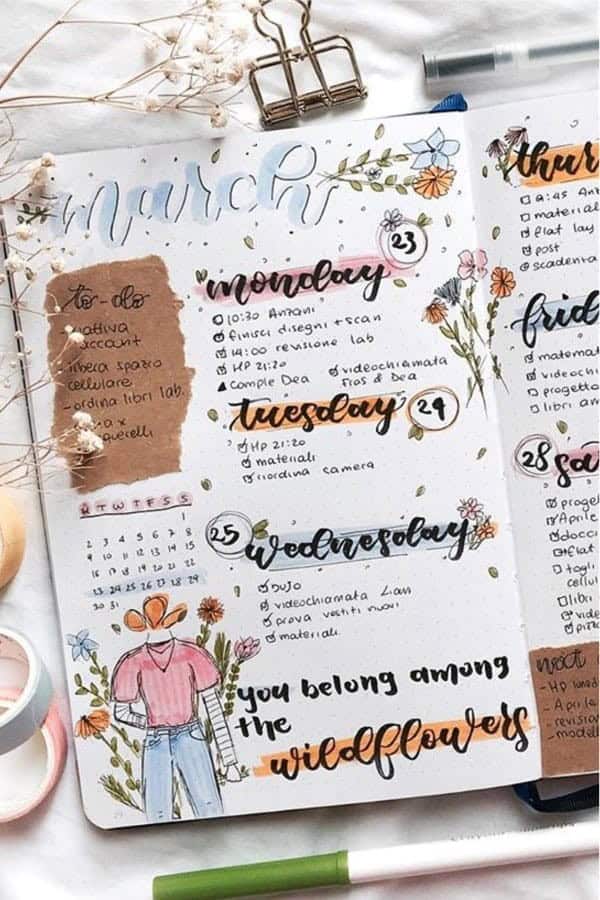 march
to-do
attiva
account
libera spazio
cellulare
- ordina libri lab.
x
M T W T F S S
1
2 3 4 5 6 7 8
9 10 11 12 13 14 15
16 17 18 19 20 21 22
23 24 25 26 27 28 29
30 31
monday 23
10:30 Anzani
finisci disegni + scan
14:00 revisione lab
HP 21:20
comple Dea
videochiamata
Fras & Dea
tuesday 24
HP 21:20
materiali
riordina camera
25 wednesday
bujo
videochiamata
prova vestiti nuovi
materiali
you belong among
the
wildflowers
thur
materiali
flat lay
post
scadenza
frid
videochi
progetto
libri
28 sa
proget
Aprile
docci
flat
togli
cellul
libri
vide
pizz
next
- HP lunedì
- Aprile
- revision
- modell